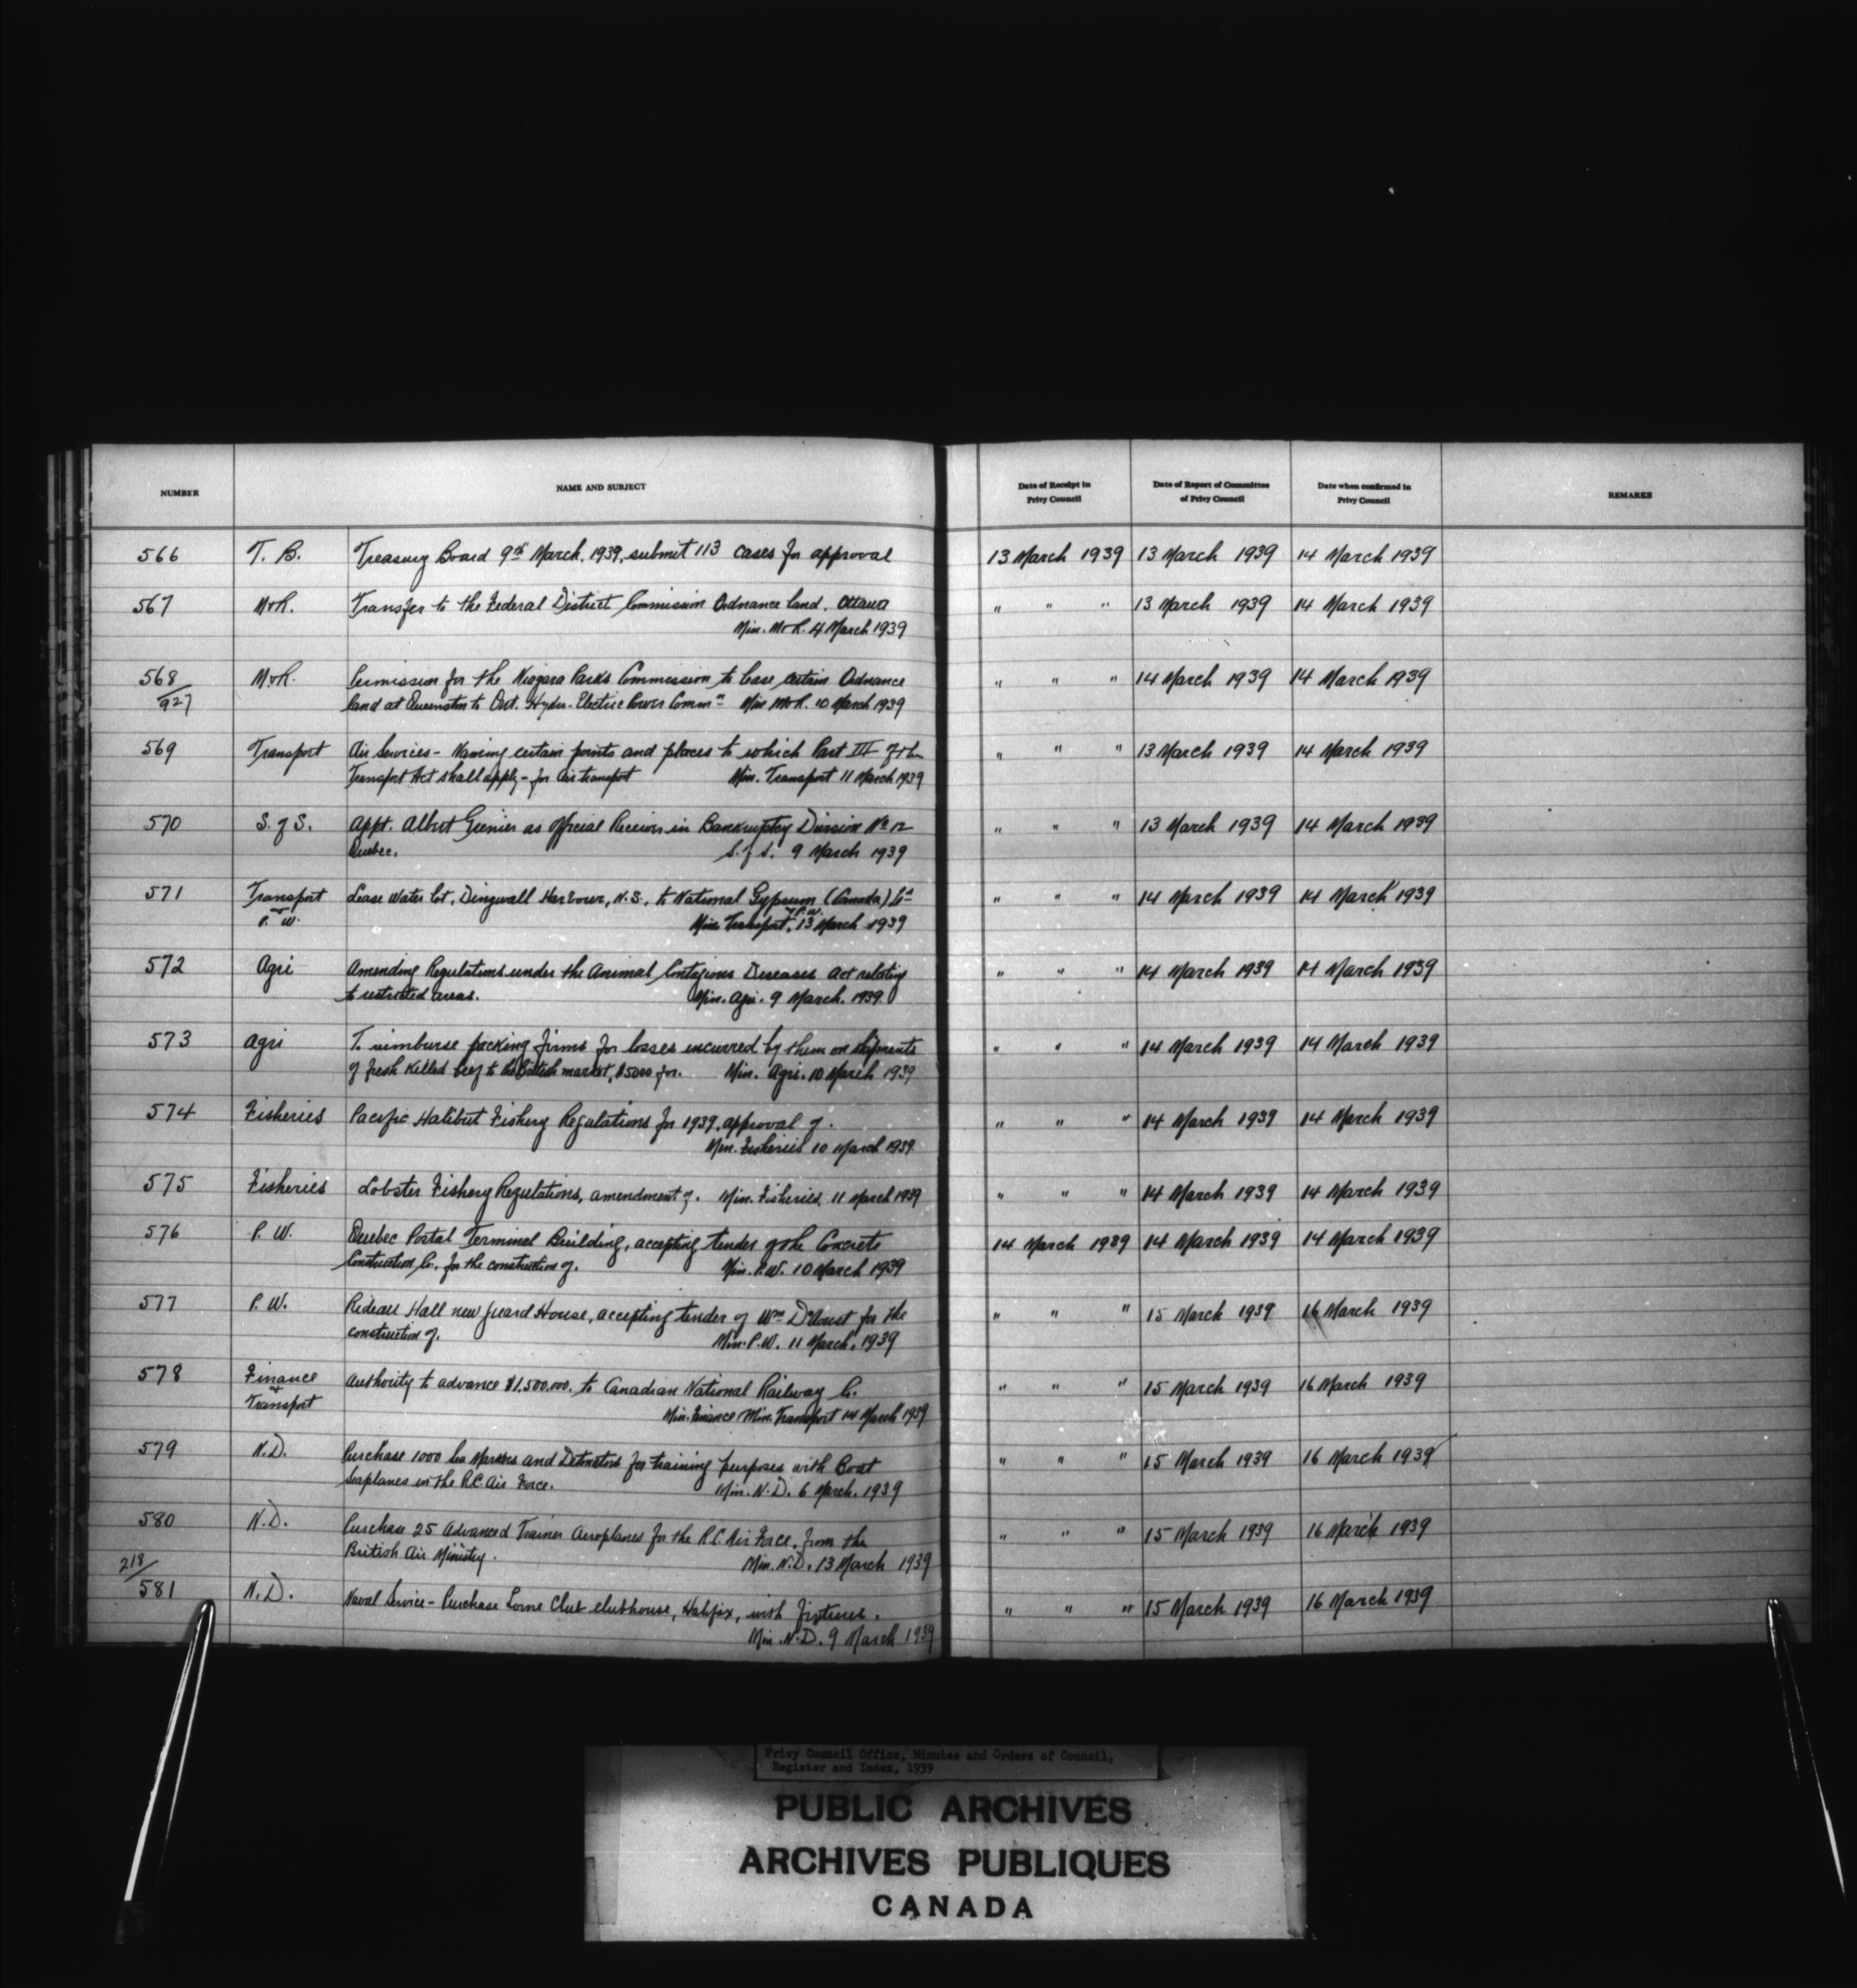 NUMBER NAME AND SUBJECT Date of Receipt in Privy Council Date of Report of Committee of Privy Council Date when confirmed in Privy Council REMARKS
566 T. B. Treasury Board 9th March. 1939, submit 113 cases for approval 13 March 1939 13 March 1939 14 March 1939
567 M&R. Transfer to the Federal District Commission Ordnance land, Ottawa " " " 13 March 1939 14 March 1939
Min. M&R. 4 March 1939
568 M&R. Permission for the Niagara Parks Commission to lease certain Ordnance " " " 14 March 1939 14 March 1939
/927 land at Queenston to Ont. Hydro-Electric Power Commn Min M&R. 10 March 1939
569 Transport Air Services - Naming certain points and places to which Part III of the " " " 13 March 1939 14 March 1939
Transport Act shall apply - for air transport Min. Transport 11 March 1939
570 S. of S. Appt. Albert Grenier as Official Receiver in Bankruptcy Division No 12 " " " 13 March 1939 14 March 1939
Quebec. S. of S. 9 March 1939
571 Transport Lease Water lot, Dingwall Harbour, N.S., to National Gypsum (Canada) Ld " " " 14 March 1939 14 March 1939
& P. W. Min Transport & P.W. 13 March 1939
572 Agri Amending Regulations under the Animal Contagious Diseases Act relating " " " 14 March 1939 14 March 1939
to restricted areas. Min. Agri. 9 March. 1939.
573 Agri To reimburse packing firms for losses incurred by them on shipments " " " 14 March 1939 14 March 1939
of fresh killed beef to the British market, $5000 for. Min. Agri. 10 March 1939
574 Fisheries Pacific Halibut Fishery Regulations for 1939, approval of. " " " 14 March 1939 14 March 1939
Min. Fisheries 10 March 1939.
575 Fisheries Lobster Fishery Regulations, amendment of. Min. Fisheries. 11 March 1939 " " " 14 March 1939 14 March 1939
576 P. W. Quebec Postal Terminal Building, accepting tender of the Concrete 14 March 1939 14 March 1939 14 March 1939
Construction Co. for the construction of. Min. P.W. 10 March 1939
577 P. W. Rideau Hall new guard House, accepting tender of Wm D'Aoust for the " " " 15 March 1939 16 March 1939
construction of. Min. P.W. 11 March, 1939
578 Finance Authority to advance $1,500.000. to Canadian National Railway Co. " " " 15 March 1939 16 March 1939
& Transport Min. Finance Min. Transport 14 March 1939
579 N.D. Purchase 1000 Sea Markers and Detonators for training purposes with Boat " " " 15 March 1939 16 March 1939
Seaplanes in the R.C. Air Force. Min. N.D. 6 March. 1939
580 N.D. Purchase 25 Advanced Trainer Aeroplanes for the R.C. Air Force, from the " " " 15 March 1939 16 March 1939
British Air Ministry. Min. N.D. 13 March 1939
218/
581 N.D. Naval Service - Purchase Lorne Club clubhouse, Halifax, with fixtures. " " " 15 March 1939 16 March 1939
Min. N.D. 9 March 1939
Privy Council Office, Minutes and Orders of Council,
Register and Index, 1939
PUBLIC ARCHIVES
ARCHIVES PUBLIQUES
CANADA